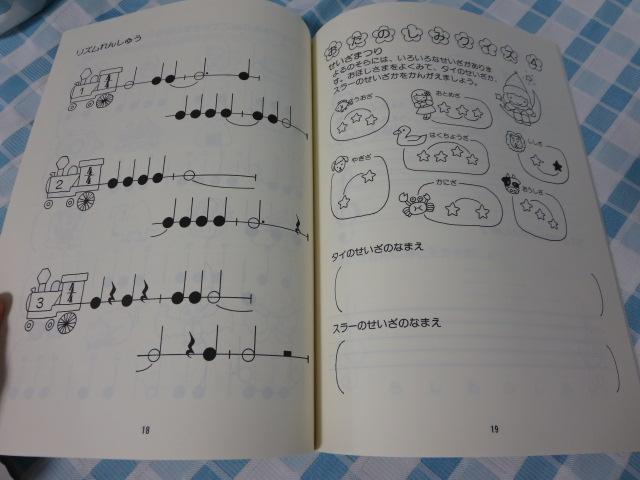 リズムれんしゅう
1
4
4
2
4
4
3
4
4
18
おたのしみクイズ4
せいざまつり
よるのそらには、いろいろなせいざがありま
す。おほしさまをよくみて、タイのせいざか、
スラーのせいざかをかんがえましょう。
おとめざ
はくちょうざ
ししざ
やぎざ
かにざ
おうしざ
タイのせいざのなまえ
スラーのせいざのなまえ
19